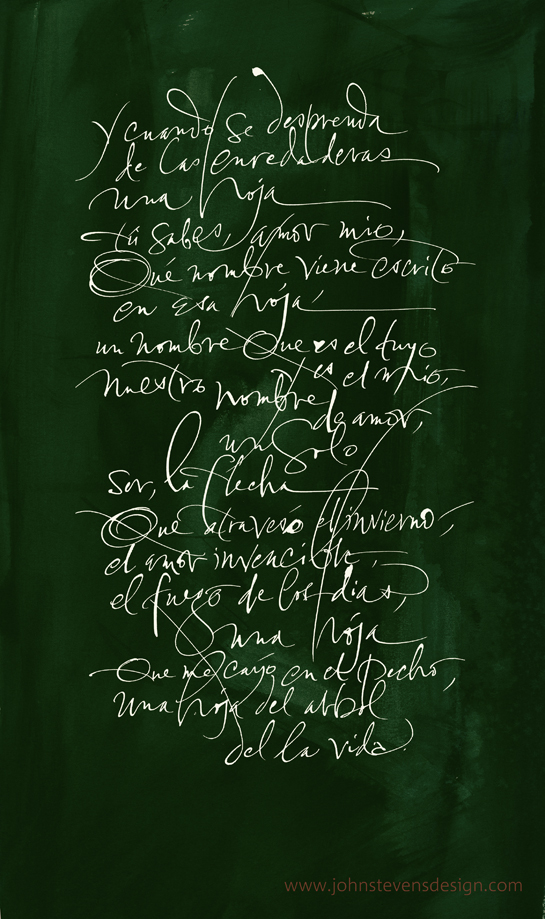 y cuando se desprenda
de las enredaderas
una hoja
tú sabes, amor mío,
Qué nombre viene escrito
en esa hoja
un nombre Que es el tuyo
y es el mío,
nuestro nombre
de amor,
un solo
ser, la flecha
Que atravesó el invierno,
el amor invencible,
el fuego de los días,
una hoja
Que me cayó en el pecho,
una hoja del árbol
del la vida
www.johnstevensdesign.com